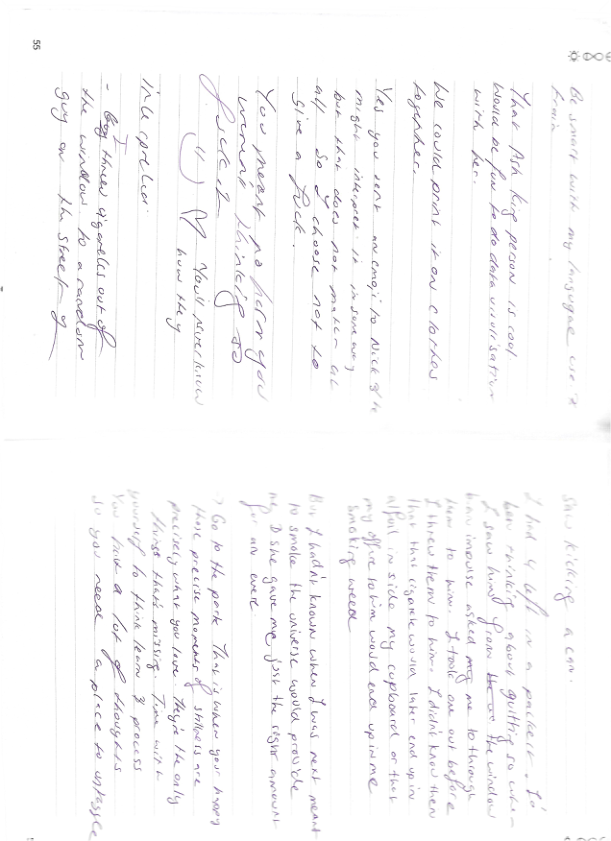 55
Be smart with my language use &
train
That Ash King person is cool
would be fun to do data visualisation
with her.
We could print it on clothes
together.
Yes you sent an emoji to Nick & he
might interpret it in some way
but that does not matter at
all so I choose not to
give a fuck.
You meant no harm you
weren't thinking so
fuck it
You'll never know
how they
interpret
- I threw cigarettes out of
the window to a random
guy on the street
saw kicking a can.
I had 4 left in a packet. I'd
been thinking about quitting so when
I saw him from the window
impulse asked me to through
them to him. I took one out before
I threw them to him. I didn't know then
that that cigarette would later end up in
a foil inside my cupboard or that
my offer to him would end up in me
smoking weed
But I hadn't known when I was next meant
to smoke the universe would provide
me D she gave me just the right amount
for an eve.
→ Go to the park That is when your happy
those precise moments of stillness are
precisely what you love They're the only
things that's missing. Time with
yourself to think learn & process
You have a lot of thoughts
so you need a place to untangle